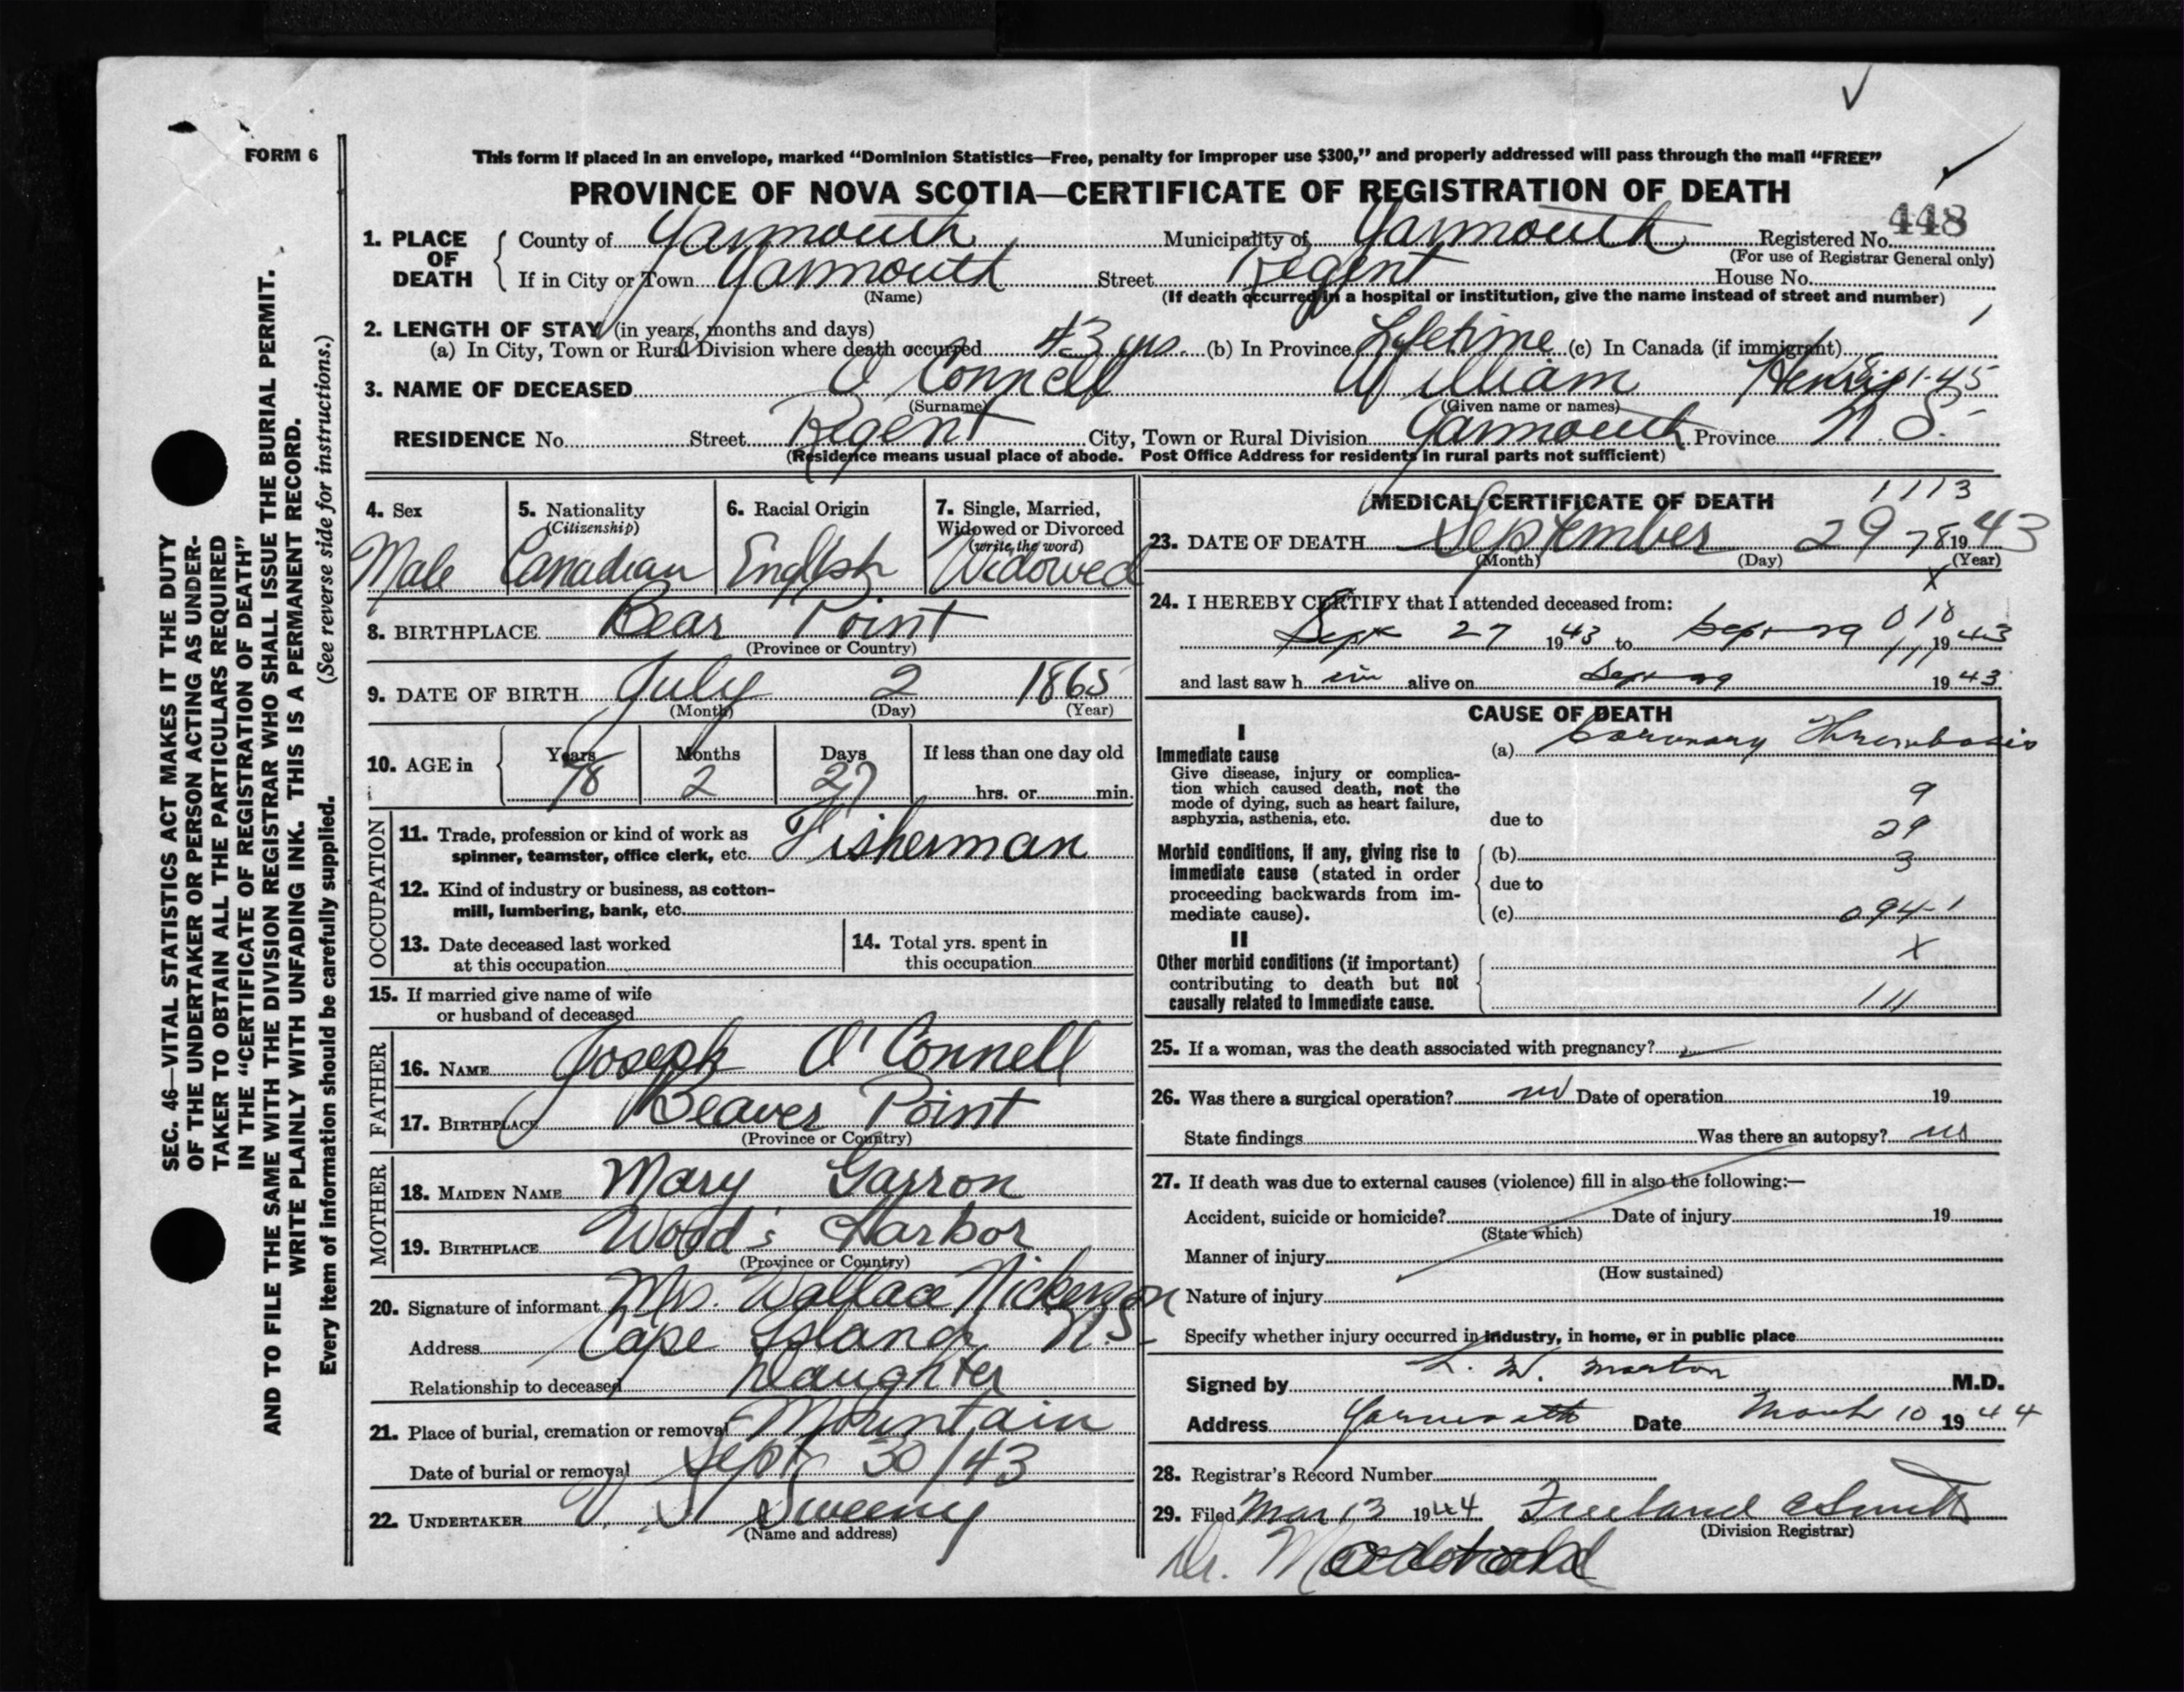 FORM 6
This form if placed in an envelope, marked “Dominion Statistics—Free, penalty for improper use $300,” and properly addressed will pass through the mail “FREE”
PROVINCE OF NOVA SCOTIA—CERTIFICATE OF REGISTRATION OF DEATH
448
1. PLACE OF DEATH County of Yarmouth Municipality of Yarmouth Registered No.
(For use of Registrar General only)
If in City or Town Yarmouth Street Regent House No.
(Name) (If death occurred in a hospital or institution, give the name instead of street and number)
2. LENGTH OF STAY (in years, months and days)
(a) In City, Town or Rural Division where death occurred 43 yrs. (b) In Province Lifetime (c) In Canada (if immigrant)
3. NAME OF DECEASED O Connell William Henry
(Surname) (Given name or names)
RESIDENCE No. Street Regent City, Town or Rural Division Yarmouth Province N. S.
(Residence means usual place of abode. Post Office Address for residents in rural parts not sufficient)
4. Sex 5. Nationality 6. Racial Origin 7. Single, Married,
(Citizenship) Widowed or Divorced
(write the word)
Male Canadian English Widowed
8. BIRTHPLACE Bear Point
(Province or Country)
9. DATE OF BIRTH July 2 1865
(Month) (Day) (Year)
10. AGE in Years Months Days If less than one day old
78 2 27 hrs. or min.
OCCUPATION
11. Trade, profession or kind of work as
spinner, teamster, office clerk, etc. Fisherman
12. Kind of industry or business, as cotton-
mill, lumbering, bank, etc.
13. Date deceased last worked
at this occupation
14. Total yrs. spent in
this occupation
15. If married give name of wife
or husband of deceased
FATHER
16. NAME Joseph O'Connell
17. BIRTHPLACE Beaver Point
(Province or Country)
MOTHER
18. MAIDEN NAME Mary Garron
19. BIRTHPLACE Wood's Harbor
(Province or Country)
20. Signature of informant Mrs. Wallace Nickerson
Address Cape Island N.S.
Relationship to deceased Daughter
21. Place of burial, cremation or removal Mountain
Date of burial or removal Sept 30/43
22. UNDERTAKER V. S. Sweeny
(Name and address)
MEDICAL CERTIFICATE OF DEATH
1113
23. DATE OF DEATH September 29 78 1943
(Month) (Day) (Year)
X
24. I HEREBY CERTIFY that I attended deceased from:
018
Sept 27 1943 to Sept 29 1943
111
and last saw h im alive on Sept 29 1943
CAUSE OF DEATH
I
Immediate cause (a) Coronary Thrombosis
Give disease, injury or complica-
tion which caused death, not the
mode of dying, such as heart failure,
asphyxia, asthenia, etc. due to
9
29
3
Morbid conditions, if any, giving rise to
immediate cause (stated in order
proceeding backwards from im-
mediate cause).
(b)
due to
(c) 094-1
II
X
Other morbid conditions (if important)
contributing to death but not
causally related to immediate cause.
111
25. If a woman, was the death associated with pregnancy?
26. Was there a surgical operation? no Date of operation 19
State findings Was there an autopsy? no
27. If death was due to external causes (violence) fill in also the following:—
Accident, suicide or homicide? Date of injury 19
(State which)
Manner of injury
(How sustained)
Nature of injury
Specify whether injury occurred in industry, in home, or in public place
Signed by L. M. Morton M.D.
Address Yarmouth Date March 10 1944
28. Registrar's Record Number
29. Filed Mar 13 1944 Freeland C Smith
(Division Registrar)
Dr. Macdonald
SEC. 46—VITAL STATISTICS ACT MAKES IT THE DUTY
OF THE UNDERTAKER OR PERSON ACTING AS UNDER-
TAKER TO OBTAIN ALL THE PARTICULARS REQUIRED
IN THE “CERTIFICATE OF REGISTRATION OF DEATH”
AND TO FILE THE SAME WITH THE DIVISION REGISTRAR WHO SHALL ISSUE THE BURIAL PERMIT.
WRITE PLAINLY WITH UNFADING INK. THIS IS A PERMANENT RECORD.
Every item of information should be carefully supplied. (See reverse side for instructions.)